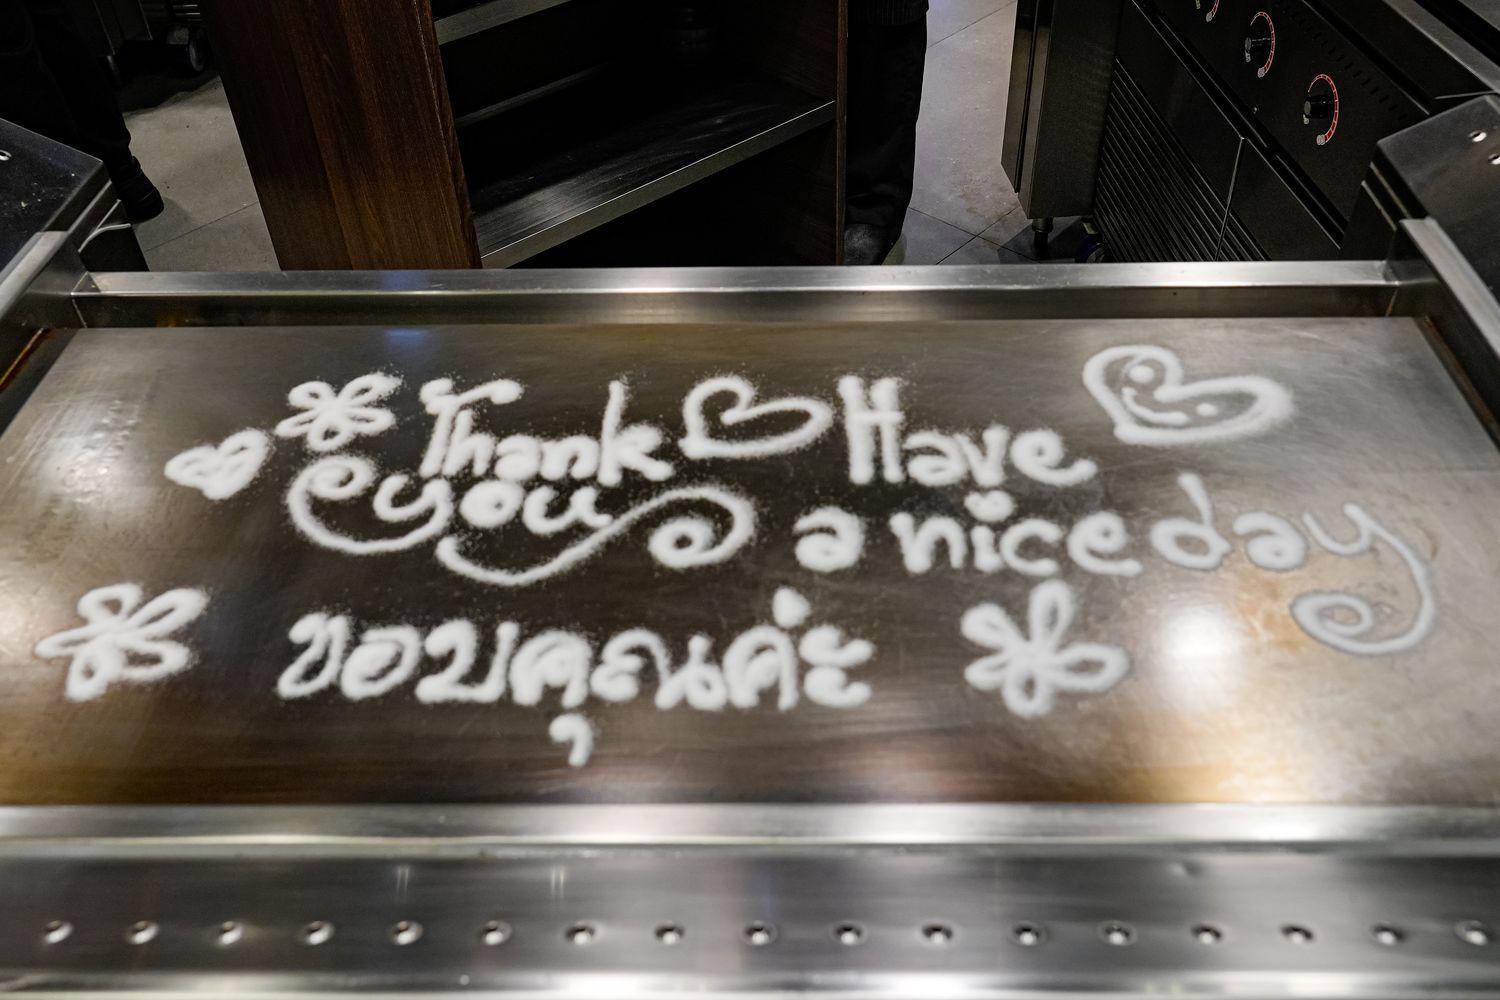 Thank Have
you a nice day
ขอบคุณค่ะ